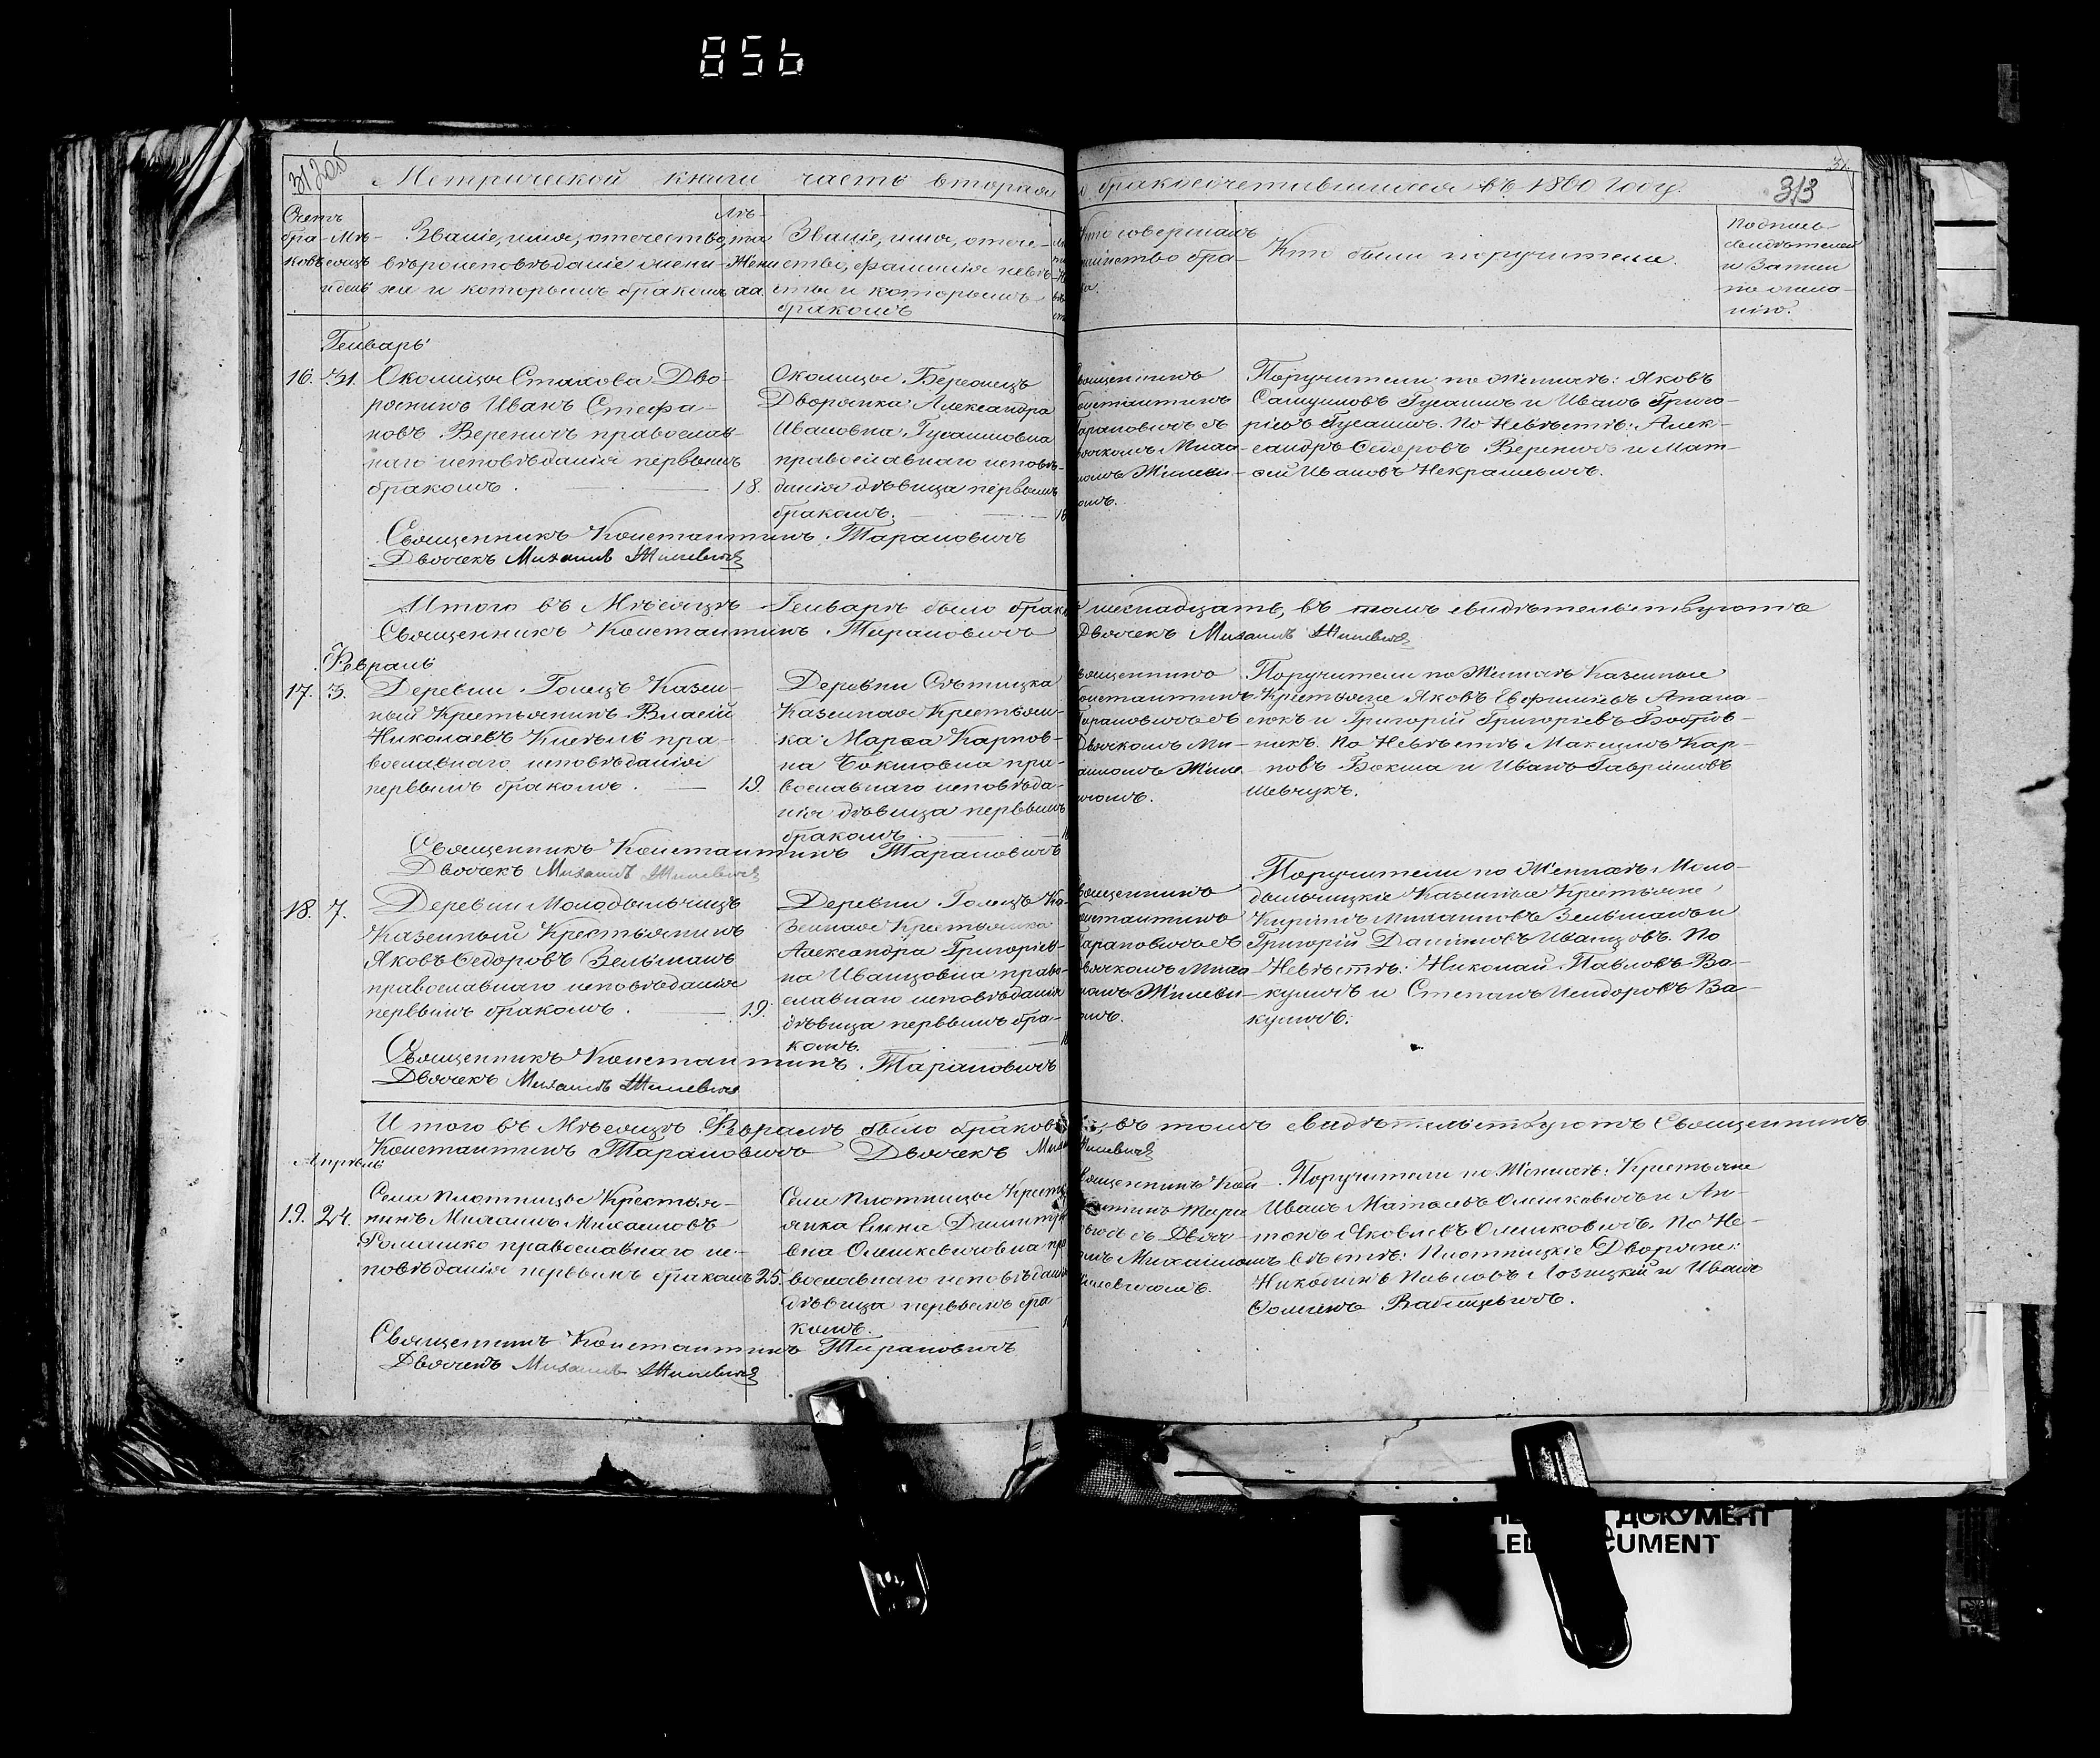 856
312об
Метрической книги часть вторая
о бракосочетавшихся въ 1860 году.
313
Счетъ
бра-
ковъ
Мѣ-
сяцъ
и день
Званіе, имя, отчество,
вѣроисповѣданіе жени-
ха и которымъ бракомъ
Лѣ-
та
Жени-
ха.
Званіе, имя, отече-
ство, фамилія невѣ-
сты и которымъ
бракомъ
Кто совершалъ
таинство бра-
ка.
Кто были поручители.
Подпись
свидѣтелей
и Записи
по жела-
нію.
Генварь
16. 31.
Околицы Стахова Дво-
рянинъ Иванъ Стефа-
новъ Вереничъ православ-
наго исповѣданія первымъ
бракомъ. 18.
Околицы Бережецъ
Дворянка Александра
Ивановна
православнаго исповѣ-
данія дѣвица первымъ
бракомъ.
Священникъ
Константинъ
Тарановичъ съ
Дьячкомъ Миха-
иломъ Жилеви-
чомъ.
Поручители по Женихѣ: Яковъ
и Иванъ Григо-
рьевъ По Невѣстѣ: Алек-
сандръ Ѳедоровъ Вереничъ и Мат-
ѳей Ивановъ Некрашевичъ.
Священникъ Константинъ Тарановичъ
Дьячекъ Михаилъ Жилевичъ
Итого въ Мѣсяцѣ Генварѣ было браковъ
шеснадцать, въ томъ свидѣтельствуютъ
Священникъ Константинъ Тарановичъ
Дьячекъ Михаилъ Жилевичъ
Февраль
17. 3.
Деревни Голецъ Казен-
ный Крестьянинъ Власій
Николаевъ Кисель пра-
вославнаго исповѣданія
первымъ бракомъ. 19.
Деревни Сѣтицка
Казенная Крестьян-
ка Марѳа Карпов-
на Бокшовна пра-
вославнаго исповѣда-
нія дѣвица первымъ
бракомъ.
Священникъ
Константинъ
Тарановичъ съ
Дьячкомъ Ми-
хаиломъ Жиле-
вичомъ.
Поручители по Женихѣ Казенные
Крестьяне Яковъ Евфимьевъ Апана-
сюкъ и Григорій Григорьевъ Бобров-
никъ. По Невѣстѣ Максимъ Кар-
повъ Бокша и Иванъ Гавріиловъ
Шевчукъ.
Священникъ Константинъ Тарановичъ
Дьячекъ Михаилъ Жилевичъ
18. 7.
Деревни Молодельчицъ
Казенный Крестьянинъ
Яковъ Ѳедоровъ Зельманъ
православнаго исповѣданія
первымъ бракомъ. 19.
Деревни Голецъ Ка-
зенная Крестьянка
Александра Григорьев-
на Иванцовна право-
славнаго исповѣданія
дѣвица первымъ бра-
комъ.
Священникъ
Константинъ
Тарановичъ съ
Дьячкомъ Миха-
иломъ Жилеви-
чомъ.
Поручители по Женихѣ: Моло-
дельчицкіе Казенные Крестьяне
Кирилъ Михаиловъ Зельманъ и
Григорій Даниловъ Иванцовъ. По
Невѣстѣ: Николай Павловъ Ва-
куличъ и Степанъ Исидоровъ Ва-
куличъ.
Священникъ Константинъ Тарановичъ
Дьячекъ Михаилъ Жилевичъ
И того въ Мѣсяцѣ Февралѣ было браковъ
въ томъ свидѣтельствуютъ Священникъ
Константинъ Тарановичъ Дьячекъ Михаилъ
Жилевичъ
Апрѣль
19. 24.
Села Плотницы Крестья-
нинъ Михаилъ Михаиловъ
Ромашко православнаго ис-
повѣданія первымъ бракомъ 25.
Села Плотницы Кресть-
янка Елена Димитріе-
вна Олешкевичовна пра-
вославнаго исповѣданія
дѣвица первымъ бра-
комъ.
Священникъ Кон-
стантинъ Тара-
новичъ съ Дьяч-
комъ Михаиломъ
Жилевичомъ.
Поручители по Женихѣ: Крестьяне
Иванъ Матѳеевъ Олешковичъ и Ан-
тонъ Яковлевъ Олешковичъ. По Не-
вѣстѣ: Плотницкіе Дворяне:
Никодимъ Павловъ Лозицкій и Иванъ
Ѳоминъ
Священникъ Константинъ Тарановичъ
Дьячекъ Михаилъ Жилевичъ
ДОКУМЕНТ
CUMENT